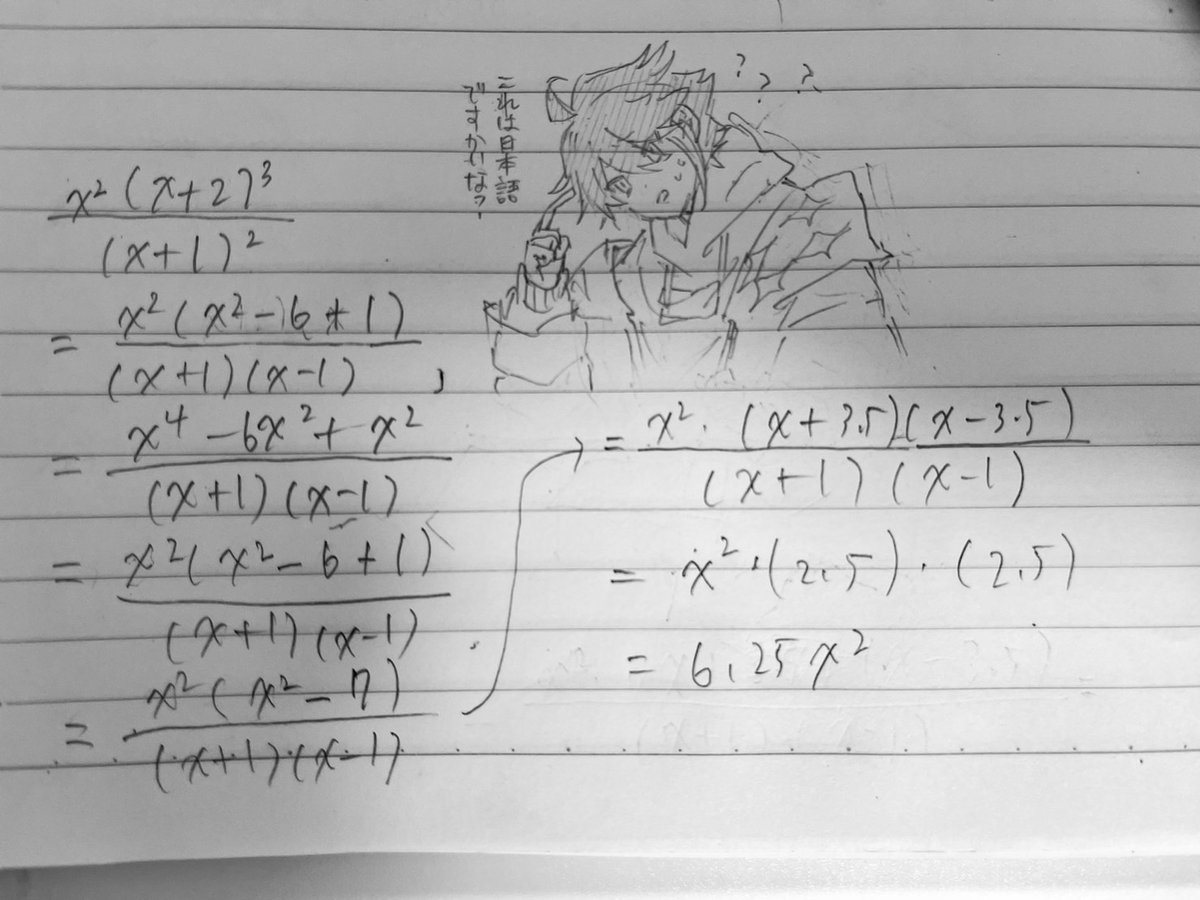 これは日本語
ですかいな?
? ? ?
x²(x+2)³
(x+1)²
= x²(x²-6+1)
(x+1)(x-1) ,
= x⁴-6x²+x²
(x+1)(x-1)
= x²(x²-6+1)
(x+1)(x-1)
= x²(x²-7)
(x+1)(x-1)
= x²・(x+3.5)(x-3.5)
(x+1)(x-1)
= x²・(2.5)・(2.5)
= 6.25x²